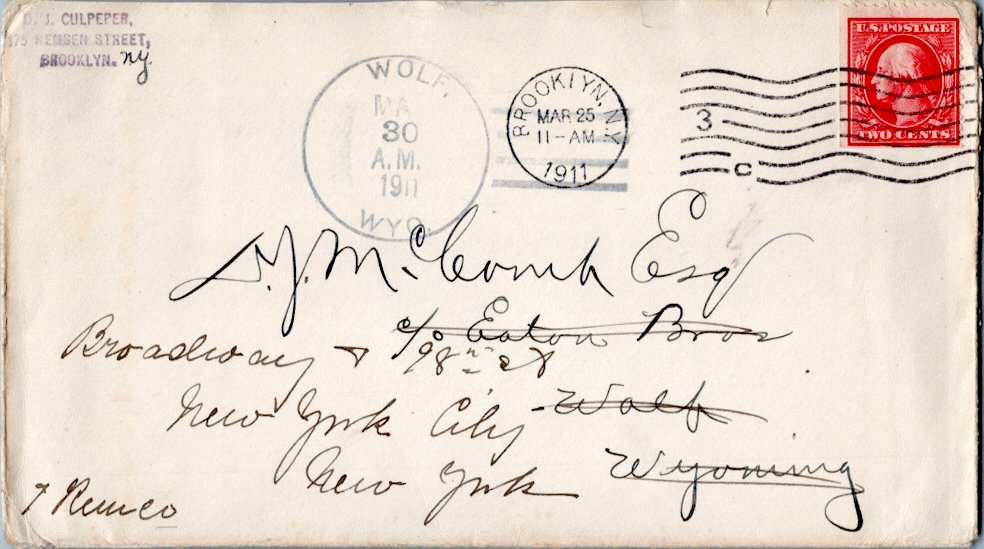 D. J. CULPEPER,
175 REMSEN STREET,
BROOKLYN. NY.
WOLF,
MA
30
A.M.
1911
WYO.
BROOKLYN, N.Y.
MAR 25
11-AM
1911
3
C
U.S. POSTAGE
TWO CENTS
D. J. McComb Esq
c/o Eaton Bros
Broadway & 98th St
New York City Wolf
New York Wyoming